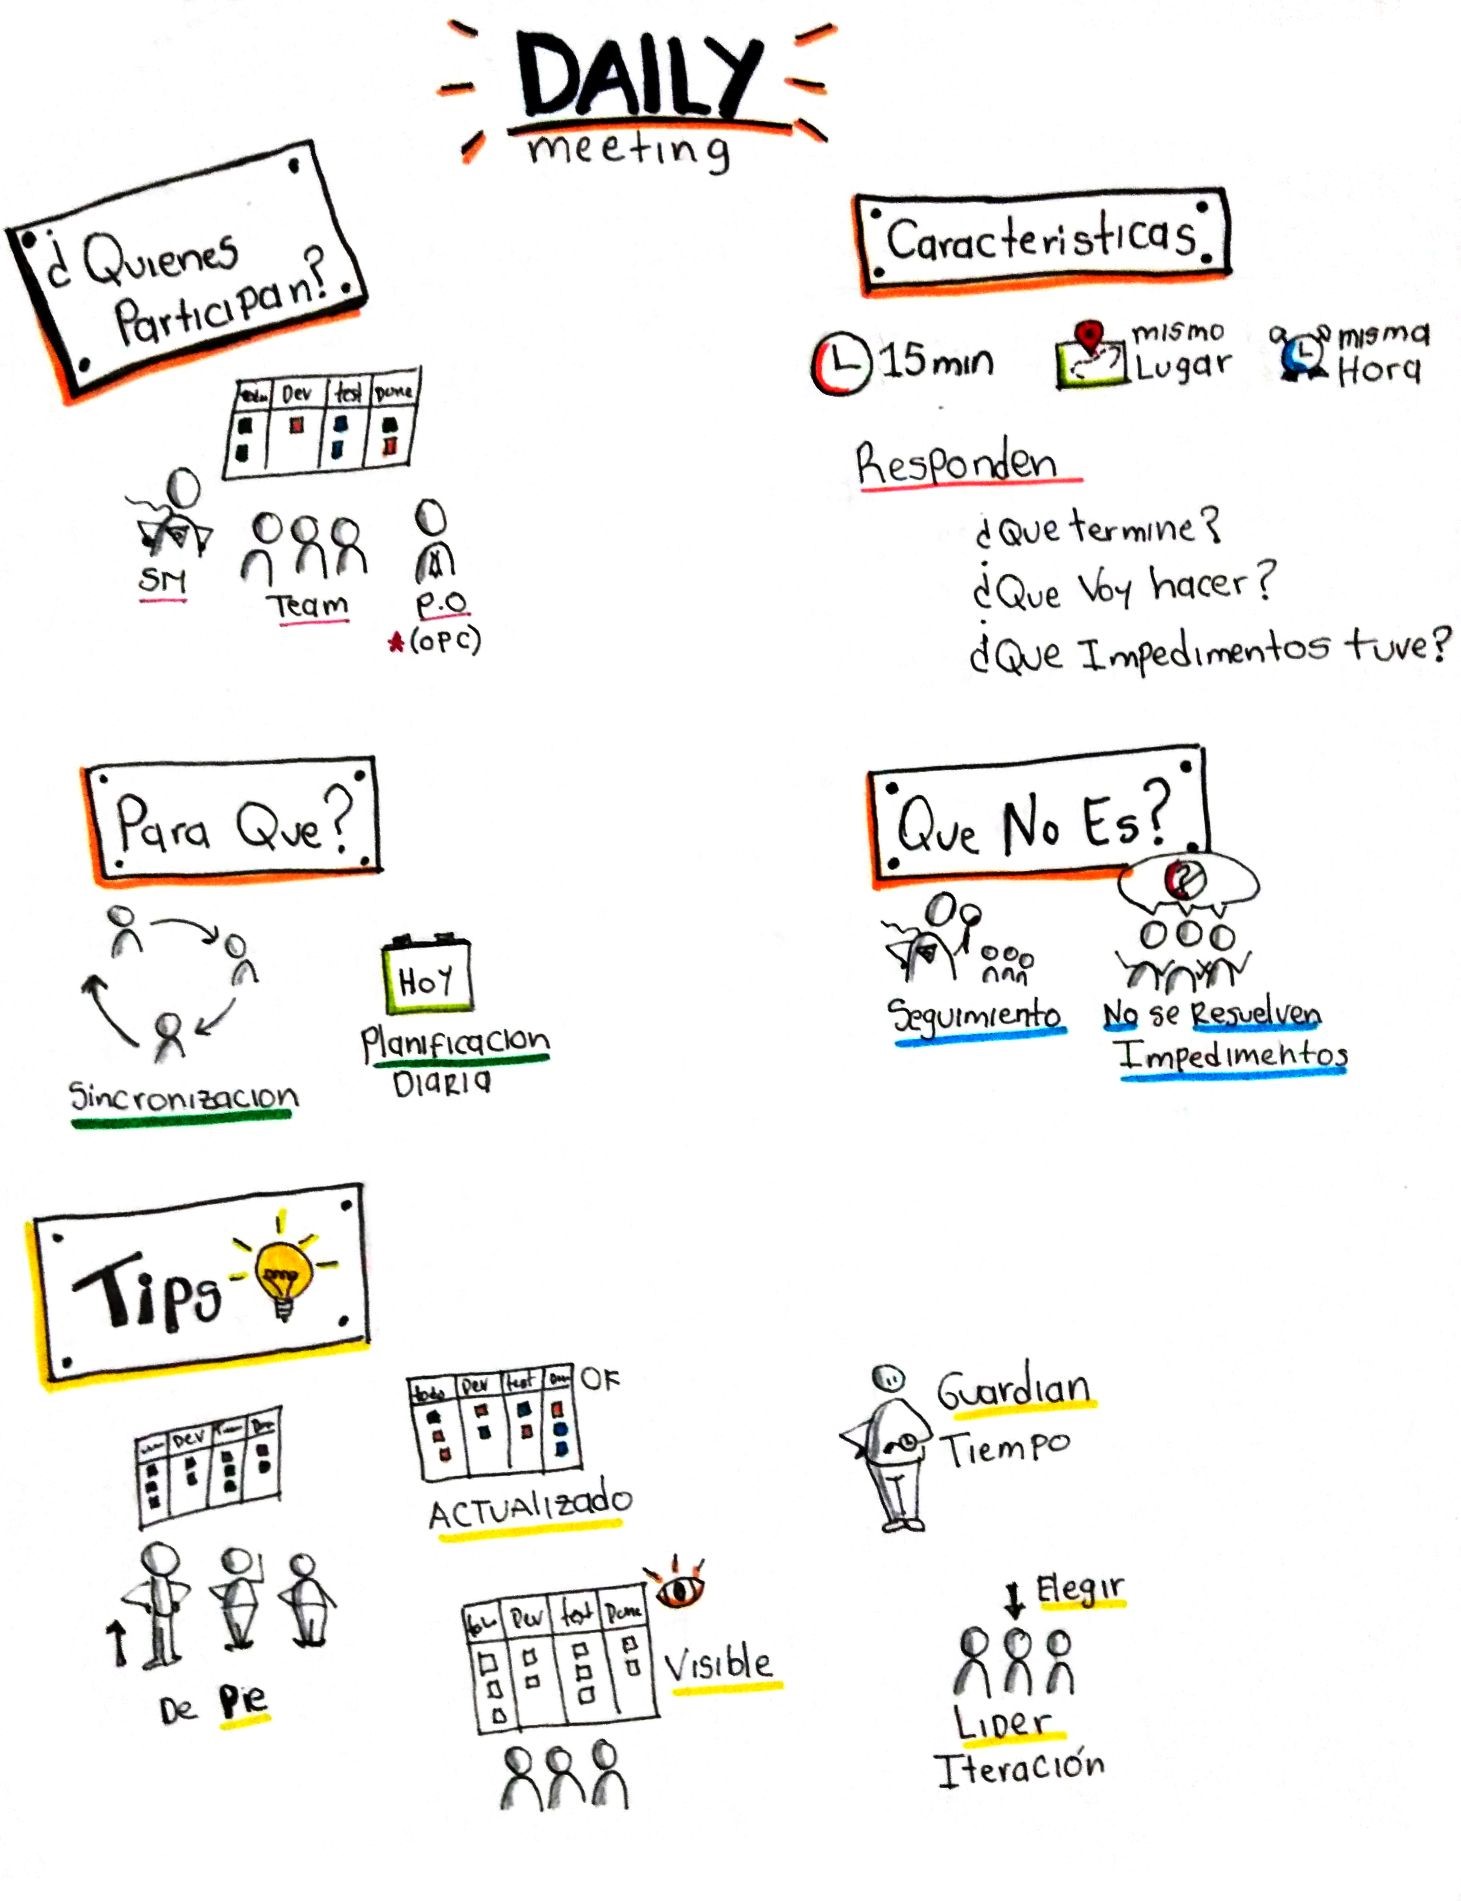 DAILY
meeting
¿Quienes
Participan?
Dev test Done
SM
Team
P.O
*(OPC)
Caracteristicas
15min
mismo
Lugar
misma
Hora
Responden
¿Que termine?
¿Que Voy hacer?
¿Que Impedimentos tuve?
Para Que?
Sincronizacion
HOY
Planificacion
DIARIA
Que No Es?
Seguimiento
No se Resuelven
Impedimentos
Tips
Dev
De Pie
todo Dev test OK
ACTUAlizado
Dev test Done
Visible
Guardian
Tiempo
Elegir
LIDER
Iteración